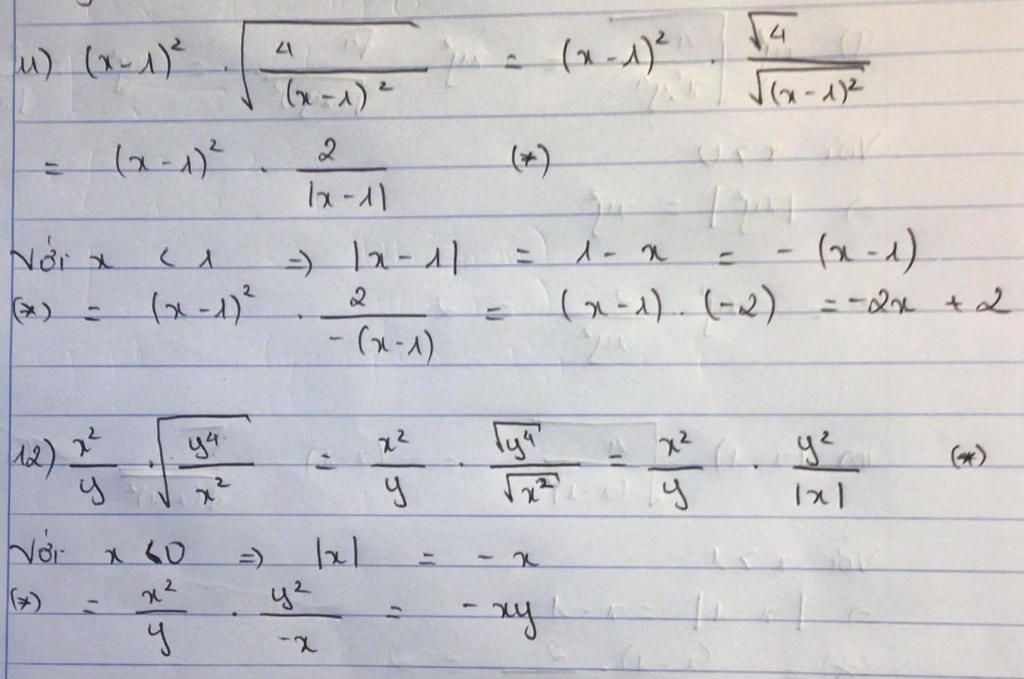 11) (x-1)² . √(4/(x-1)²) = (x-1)² . √4/√(x-1)²
= (x-1)² . 2/|x-1| (*)
Với x < 1 => |x-1| = 1-x = -(x-1)
(*) = (x-1)² . 2/-(x-1) = (x-1).(-2) = -2x + 2
12) x²/y . √(y⁴/x²) = x²/y . √y⁴/√x² = x²/y . y²/|x| (*)
Với x < 0 => |x| = -x
(*) = x²/y . y²/-x = -xy